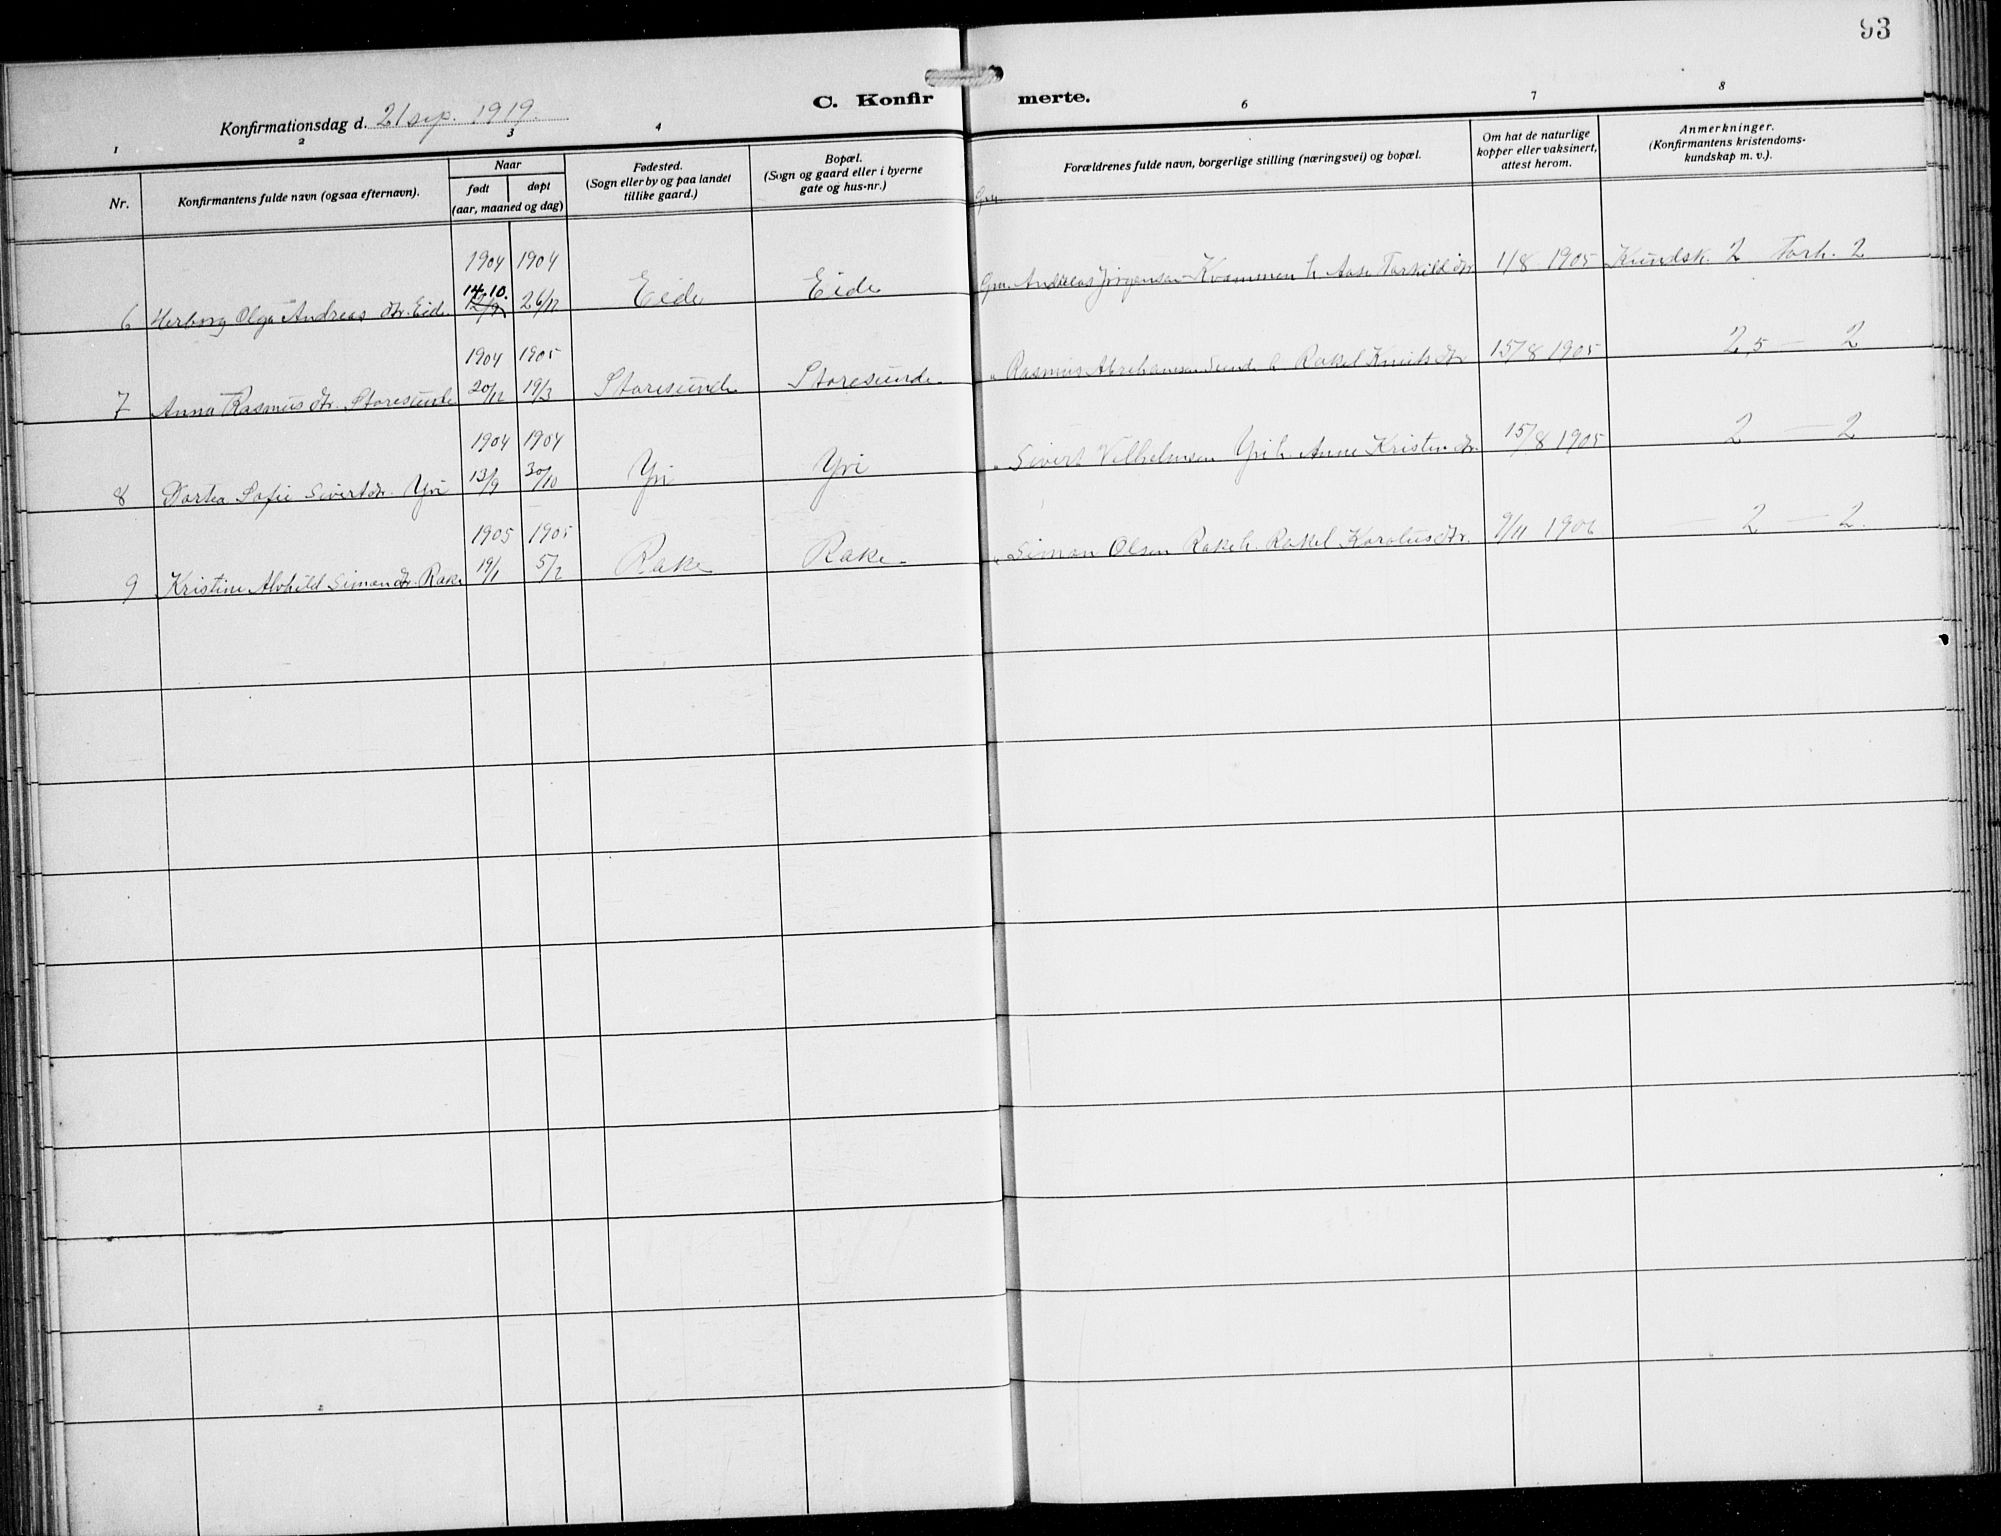 93
C. Konfirmerte.
Konfirmationsdag d. 21 sep. 1919.
1 2 3 4 6 7 8
Nr.
Konfirmantens fulde navn (ogsaa efternavn).
Naar
født døpt
(aar, maaned og dag)
Fødested.
(Sogn eller by og paa landet
tillike gaard.)
Bopæl.
(Sogn og gaard eller i byerne
gate og hus-nr.)
Forældrenes fulde navn, borgerlige stilling (næringsvei) og bopæl.
Om hat de naturlige
kopper eller vaksinert,
attest herom.
Anmerkninger.
(Konfirmantens kristendoms-
kundskap m. v.).
1904 1904
14.10.
6 Herborg Olga Andreas dtr. Eide 12/9 26/12 Eide Eide Gm. Andreas Jørgensen Kvammen h. Aase Torkild dtr. 1/8 1905 Kundsk. 2 Forh. 2
1904 1905
7 Anna Rasmus dtr. Storesunde 20/12 19/3 Storesunde Storesunde. " Rasmus Abrahamsen Sunde h. Rakel Knuts dtr 15/8 1905 2,5 — 2
1904 1904
8 Dortea Sofie Sivert dr. Yri 13/9 30/10 Yri Yri " Sivert Vilhelmsen Yri h. Anne Kristen dtr. 15/8 1905 2 — 2
1905 1905
9 Kristine Alvhild Simon dtr. Rake 19/1 5/2 Rake Rake. " Simon Olsen Rake h. Rakel Karolus dtr. 9/11 1906 — 2 — 2.